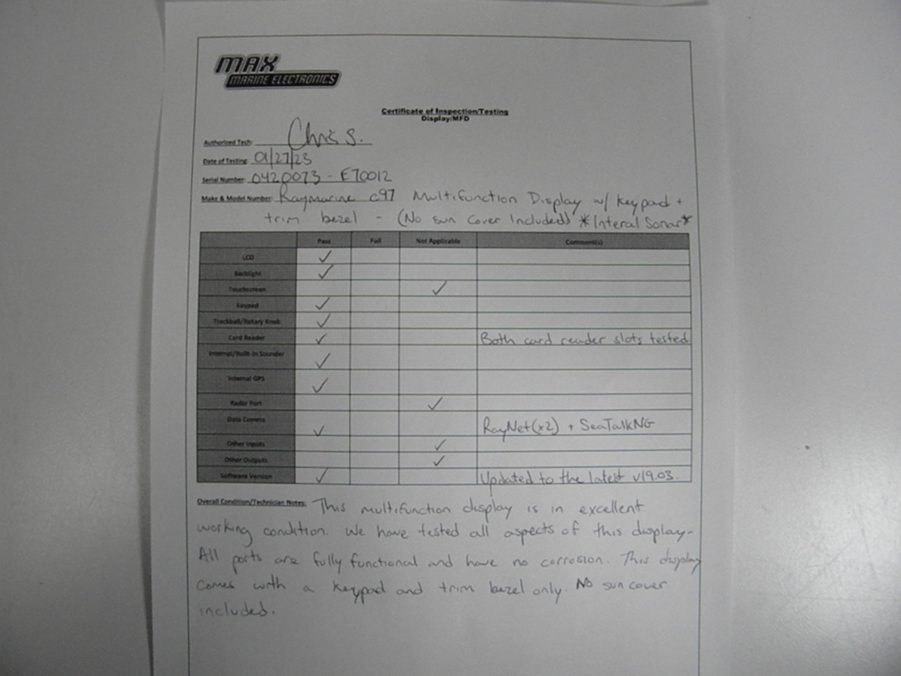 MAX
MARINE ELECTRONICS
Certificate of Inspection/Testing
Display/MFD
Authorized Tech: Chris S.
Date of Testing: 01/27/23
Serial Number: 0420073 - E70012
Make & Model Number: Raymarine c97 Multifunction Display w/ Keypad +
trim bezel - (No sun cover Included) *Interal Sonar*
Pass Fail Not Applicable Comment(s)
LCD ✓
Backlight ✓
Touchscreen ✓
Keypad ✓
Trackball/Rotary Knob ✓
Card Reader ✓ Both card reader slots tested
Internal/Built-in Sounder ✓
Internal GPS ✓
Radar Port ✓
Data Comms ✓ RayNet(x2) + SeaTalkNG
Other Inputs ✓
Other Outputs ✓
Software Version ✓ Updated to the latest v19.03.
Overall Condition/Technician Notes: This multifunction display is in excellent
working condition. We have tested all aspects of this display.
All ports are fully functional and have no corrosion. This display
comes with a keypad and trim bezel only. No sun cover
included.